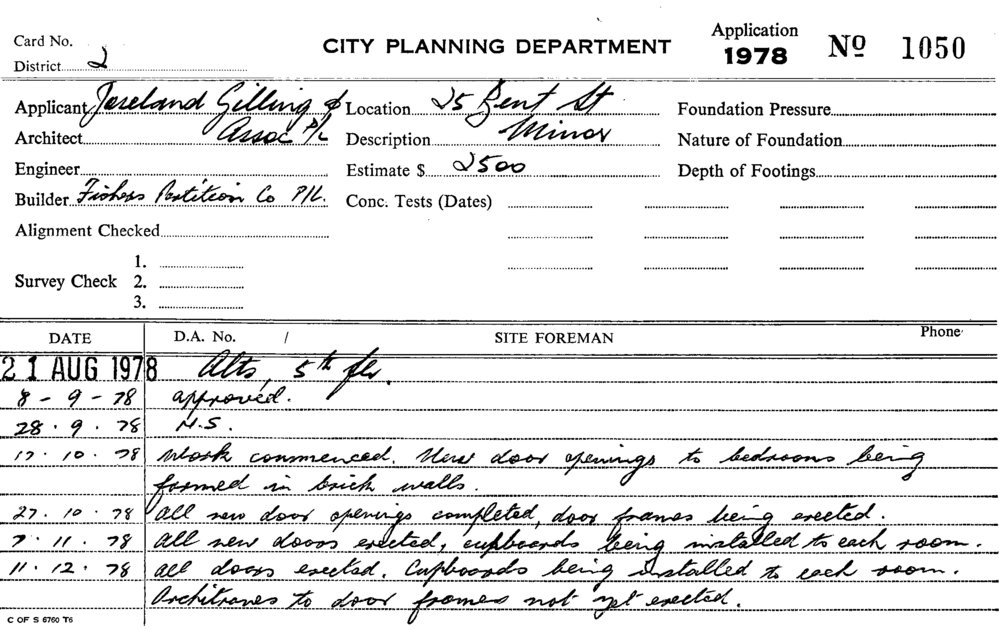 Card No.
District 2
CITY PLANNING DEPARTMENT
Application
1978
Nº 1050
Applicant Joseland Gilling &
Architect Assoc P/L
Engineer
Builder Fishers Partition Co P/L.
Alignment Checked
Survey Check 1.
2.
3.
Location 25 Bent St
Description Minor
Estimate $ 2500
Conc. Tests (Dates)
Foundation Pressure
Nature of Foundation
Depth of Footings
DATE D.A. No. / SITE FOREMAN Phone
21 AUG 1978 Alts, 5th flr.
8 - 9 - 78 approved.
28 . 9 . 78 N.S.
17 . 10 . 78 Work commenced. New door openings to bedrooms being
formed in brick walls.
27 . 10 . 78 All new door openings completed, door frames being erected.
7 . 11 . 78 All new doors erected, cupboards being installed to each room.
11 . 12 . 78 All doors erected. Cupboards being installed to each room.
Architraves to door frames not yet erected.
C OF S 6760 T6